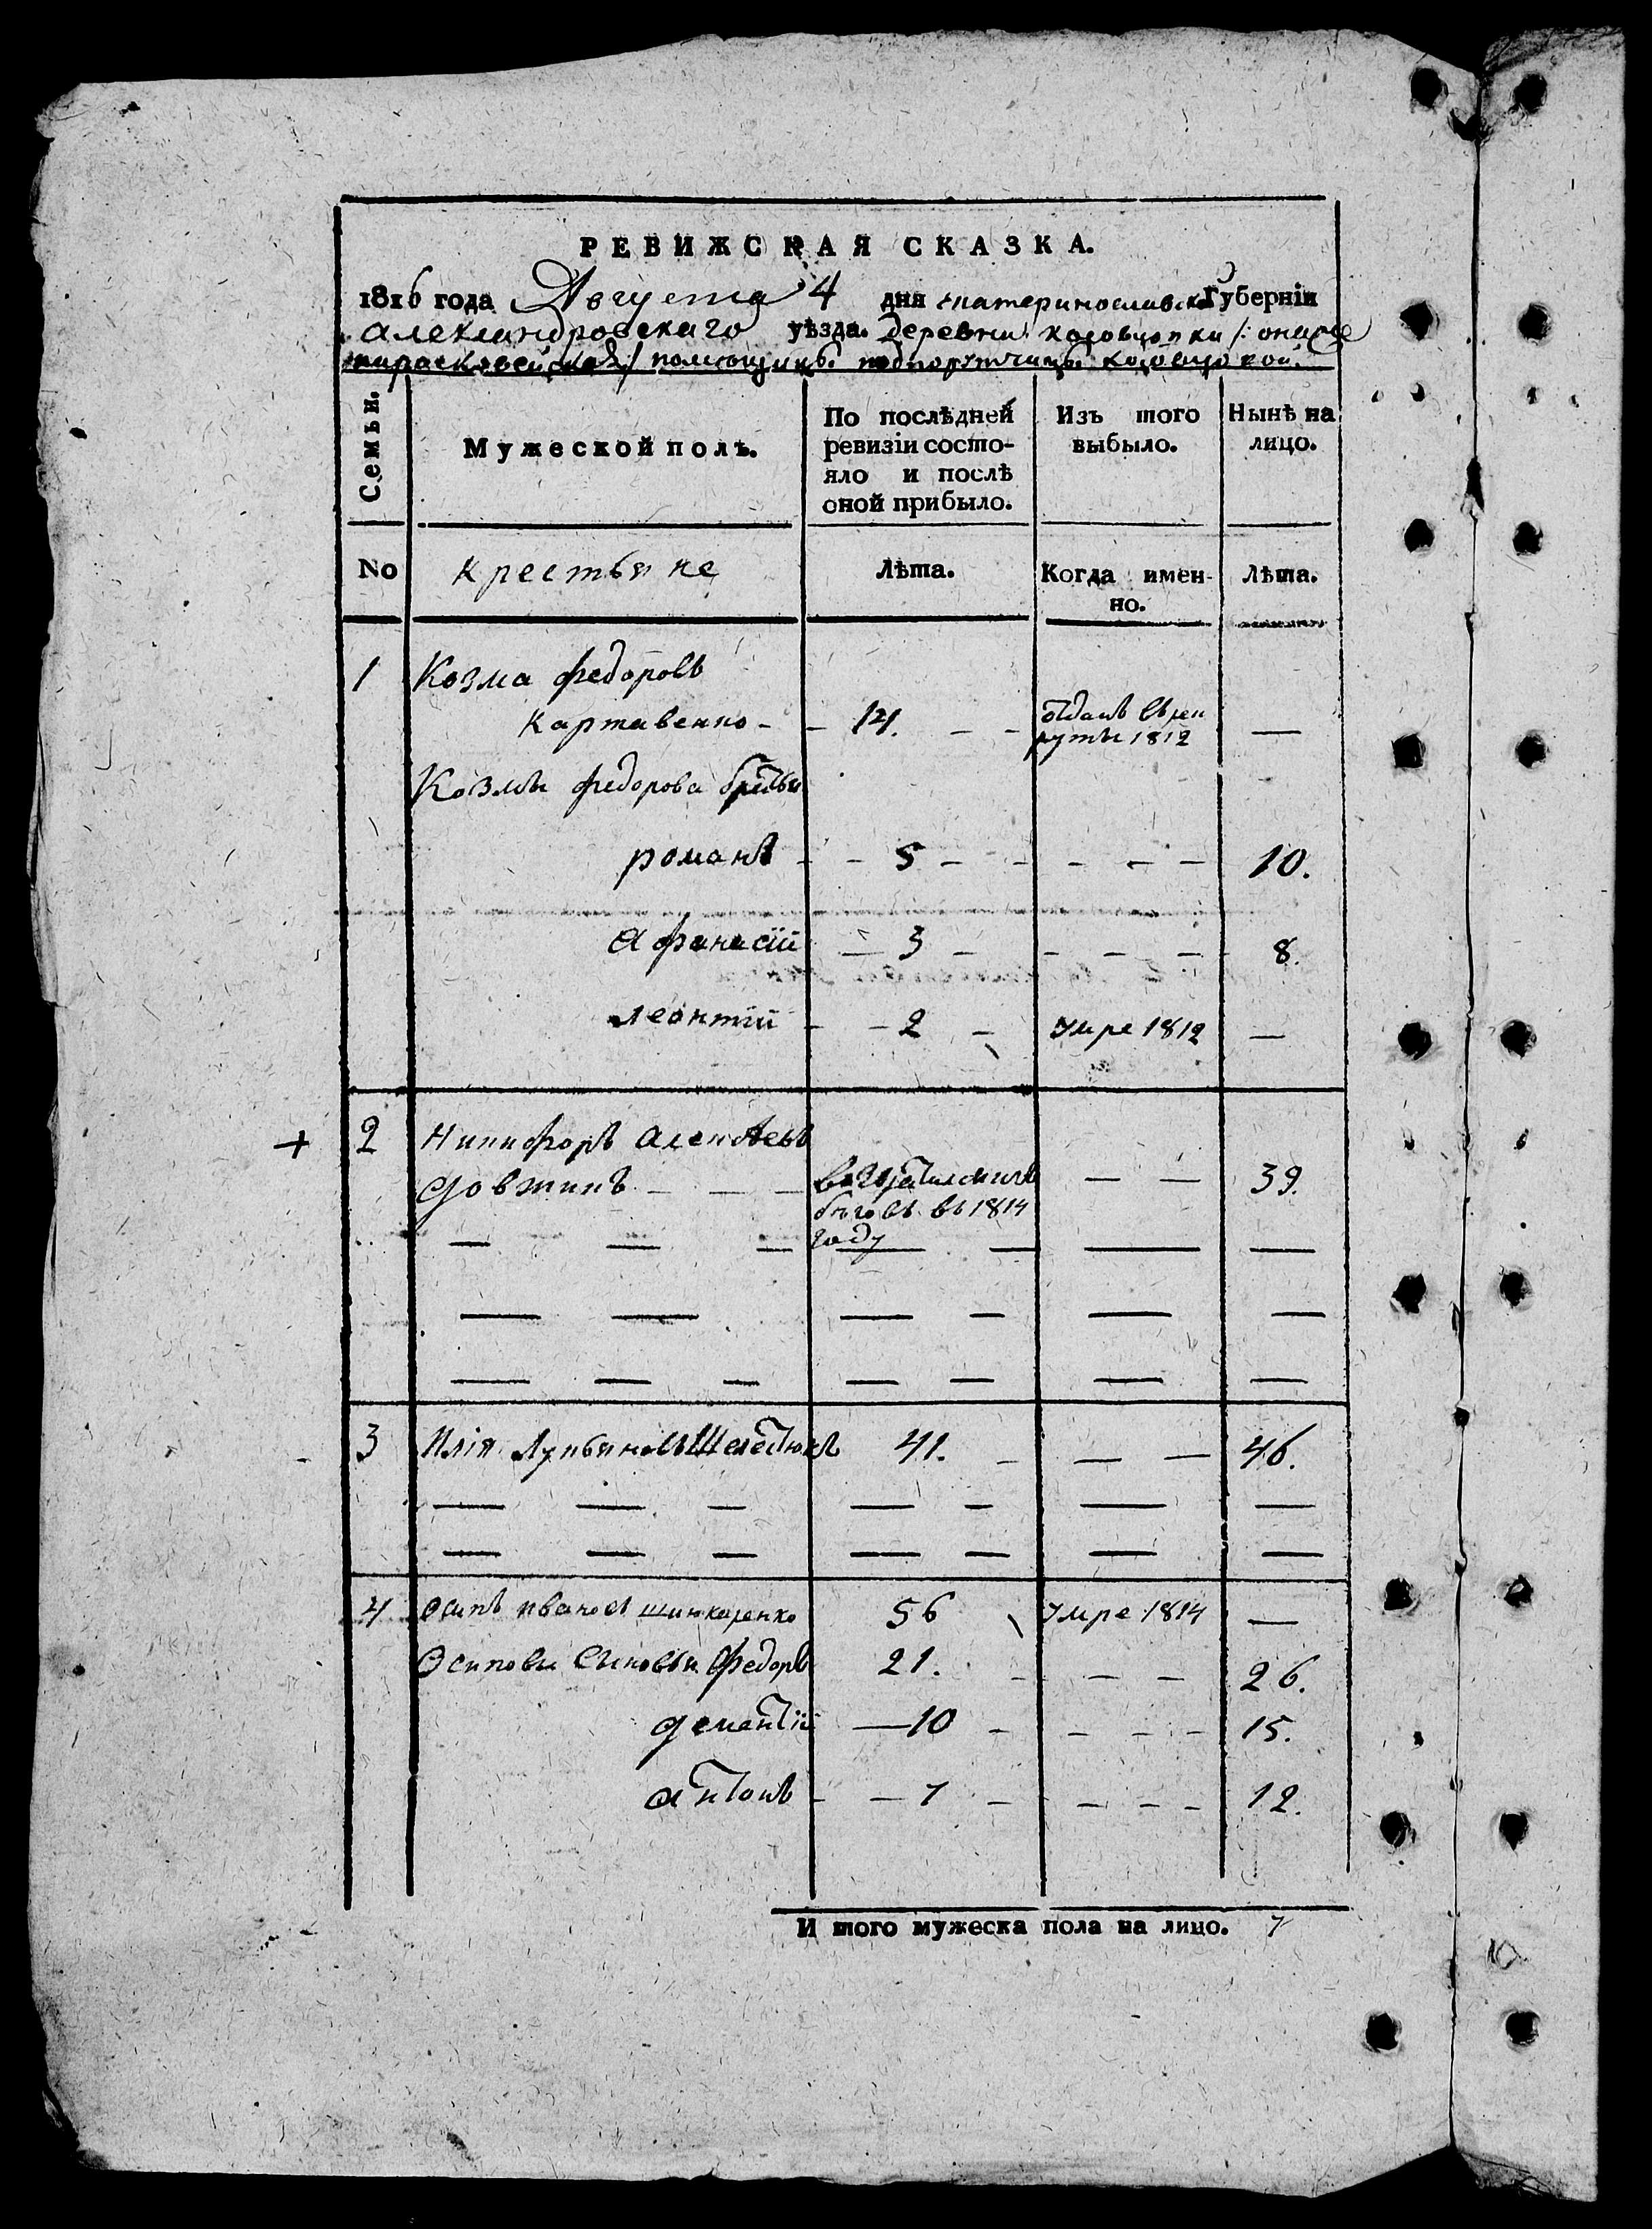 РЕВИЖСКАЯ СКАЗКА.
1816 года Августа 4 дня Екатеринославской Губернiи
Александровскаго уѣзда. Деревни Козовцопки /: она же
Парасковейская:/ помещицы подпорутчицы Козовцовой.
Семьи. Мужеской полъ. По послѣдней ревизiи состояло и послѣ оной прибыло. Изъ того выбыло. Нынѣ на лицо.
No крестьяне Лѣта. Когда именно. Лѣта.
1 Козма Федоровъ
Картавенко - - 14. - - отданъ въ рекруты 1812 —
Козмы Федорова братья
романъ - - 5 - - - - - 10.
Афанасiй — 3 - - - - 8.
леонтiй - - 2 - Умре 1812 —
+ 2 Никифоръ Алексѣевъ
Довжикъ - - - возвратился изъ бѣговъ въ 1814 году — — 39.
3 Илiя Лукьяновъ Шелестюкъ 41. - — — 46.
4 Осипъ Ивановъ шинкаренко 56 Умре 1814 —
Осиповы Сыновья Федоръ 21. - - - 26.
Дементiй — 10 - - - - 15.
антонъ - - 7 - - - - 12.
И того мужеска пола на лицо. 7
10